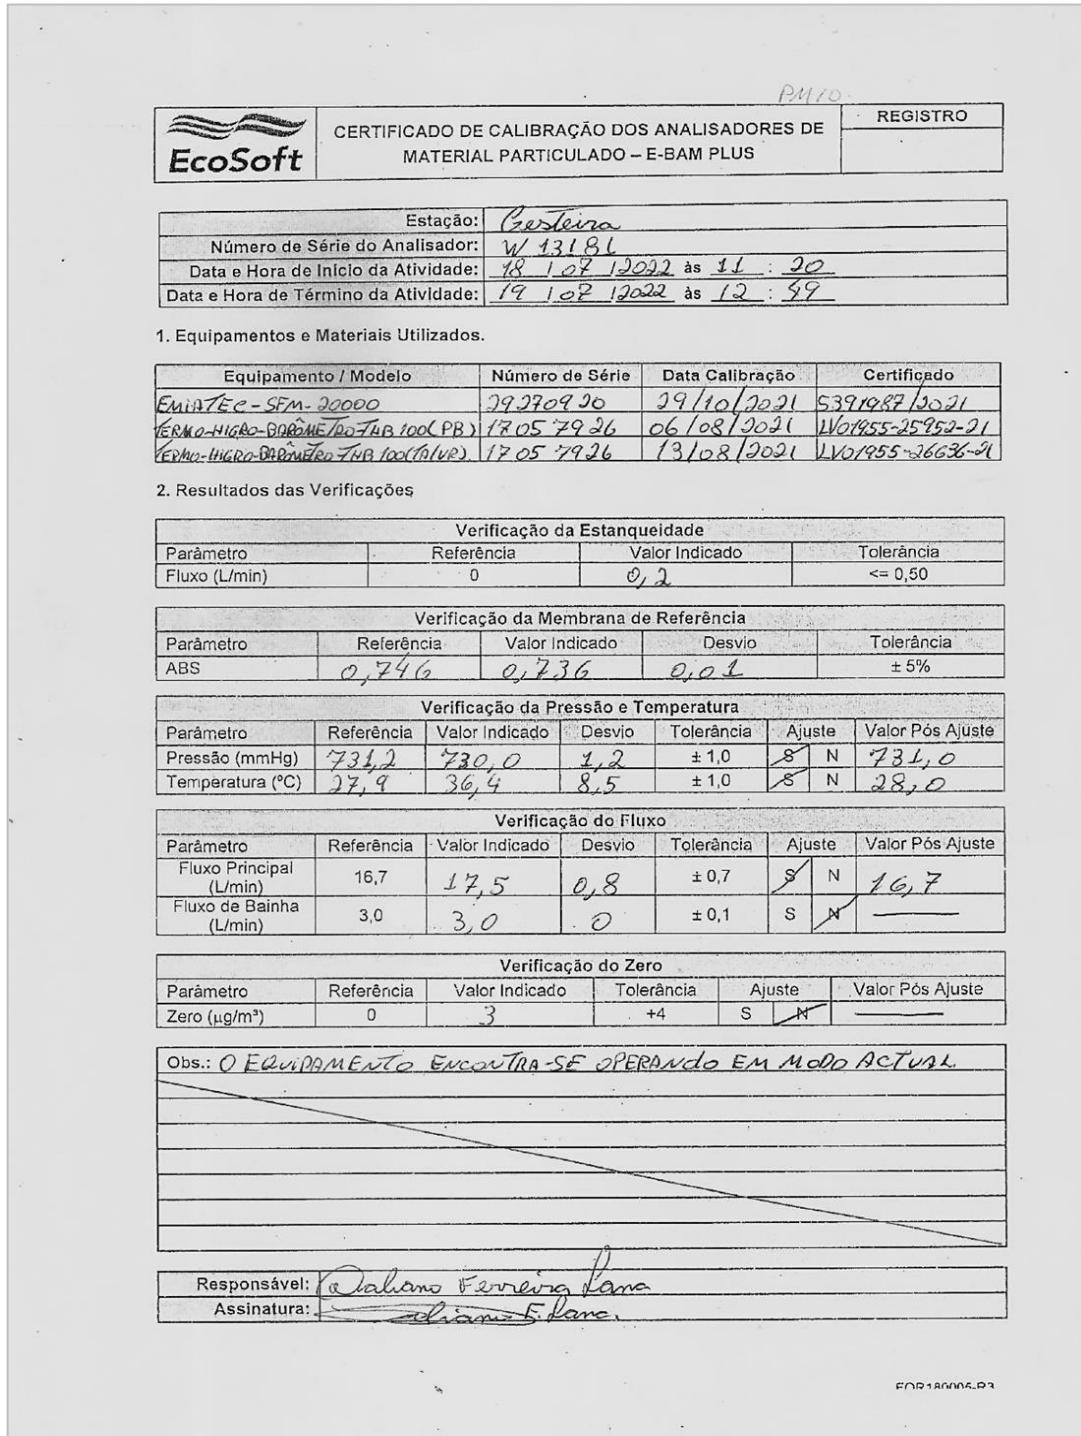 PM10
EcoSoft
CERTIFICADO DE CALIBRAÇÃO DOS ANALISADORES DE
MATERIAL PARTICULADO – E-BAM PLUS
REGISTRO
Estação: Gesteira
Número de Série do Analisador: W 13181
Data e Hora de Início da Atividade: 18 / 07 / 2022 às 11 : 20
Data e Hora de Término da Atividade: 19 / 07 / 2022 às 12 : 49
1. Equipamentos e Materiais Utilizados.
Equipamento / Modelo Número de Série Data Calibração Certificado
29270920 29/10/2021 5391987/2021
TERMO-HIGRO-BARÔMETRO THB 100 (PB) 17057926 06/08/2021 LV01955-25952-21
TERMO-HIGRO-BARÔMETRO THB 100 (TA/UR) 17057926 13/08/2021 LV01955-26636-21
2. Resultados das Verificações
Verificação da Estanqueidade
Parâmetro Referência Valor Indicado Tolerância
Fluxo (L/min) 0 0,2 <= 0,50
Verificação da Membrana de Referência
Parâmetro Referência Valor Indicado Desvio Tolerância
ABS 0,746 0,736 0,01 ± 5%
Verificação da Pressão e Temperatura
Parâmetro Referência Valor Indicado Desvio Tolerância Ajuste Valor Pós Ajuste
Pressão (mmHg) 731,2 730,0 1,2 ± 1,0 S N 731,0
Temperatura (ºC) 27,9 36,4 8,5 ± 1,0 S N 28,0
Verificação do Fluxo
Parâmetro Referência Valor Indicado Desvio Tolerância Ajuste Valor Pós Ajuste
Fluxo Principal (L/min) 16,7 17,5 0,8 ± 0,7 S N 16,7
Fluxo de Bainha (L/min) 3,0 3,0 0 ± 0,1 S N
Verificação do Zero
Parâmetro Referência Valor Indicado Tolerância Ajuste Valor Pós Ajuste
Zero (µg/m³) 0 3 +4 S N
Obs.: O EQUIPAMENTO ENCONTRA-SE OPERANDO EM MODO ACTUAL
Responsável: Ferreira Lana
Assinatura: F. Lana.
FOR180005-R3